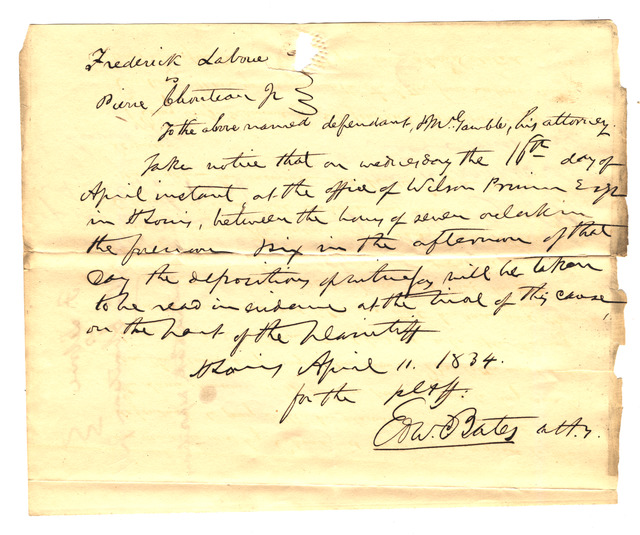 Frederick Laboue
vs
Pierre Chouteau Jr
To the above named defendant, & Mr. Gamble, his attorney
Take notice that on wednesday the 16th day of
April instant, at the office of Wilson Primm Esqr
in St Louis, between the hours of seven oclock in
the forenoon & six in the afternoon of that
day the depositions of witnesses will be taken
to be read in evidence at the trial of this cause,
on the part of the plaintiff
St Louis April 11. 1834.
for the pltff.
Edw. Bates atty.